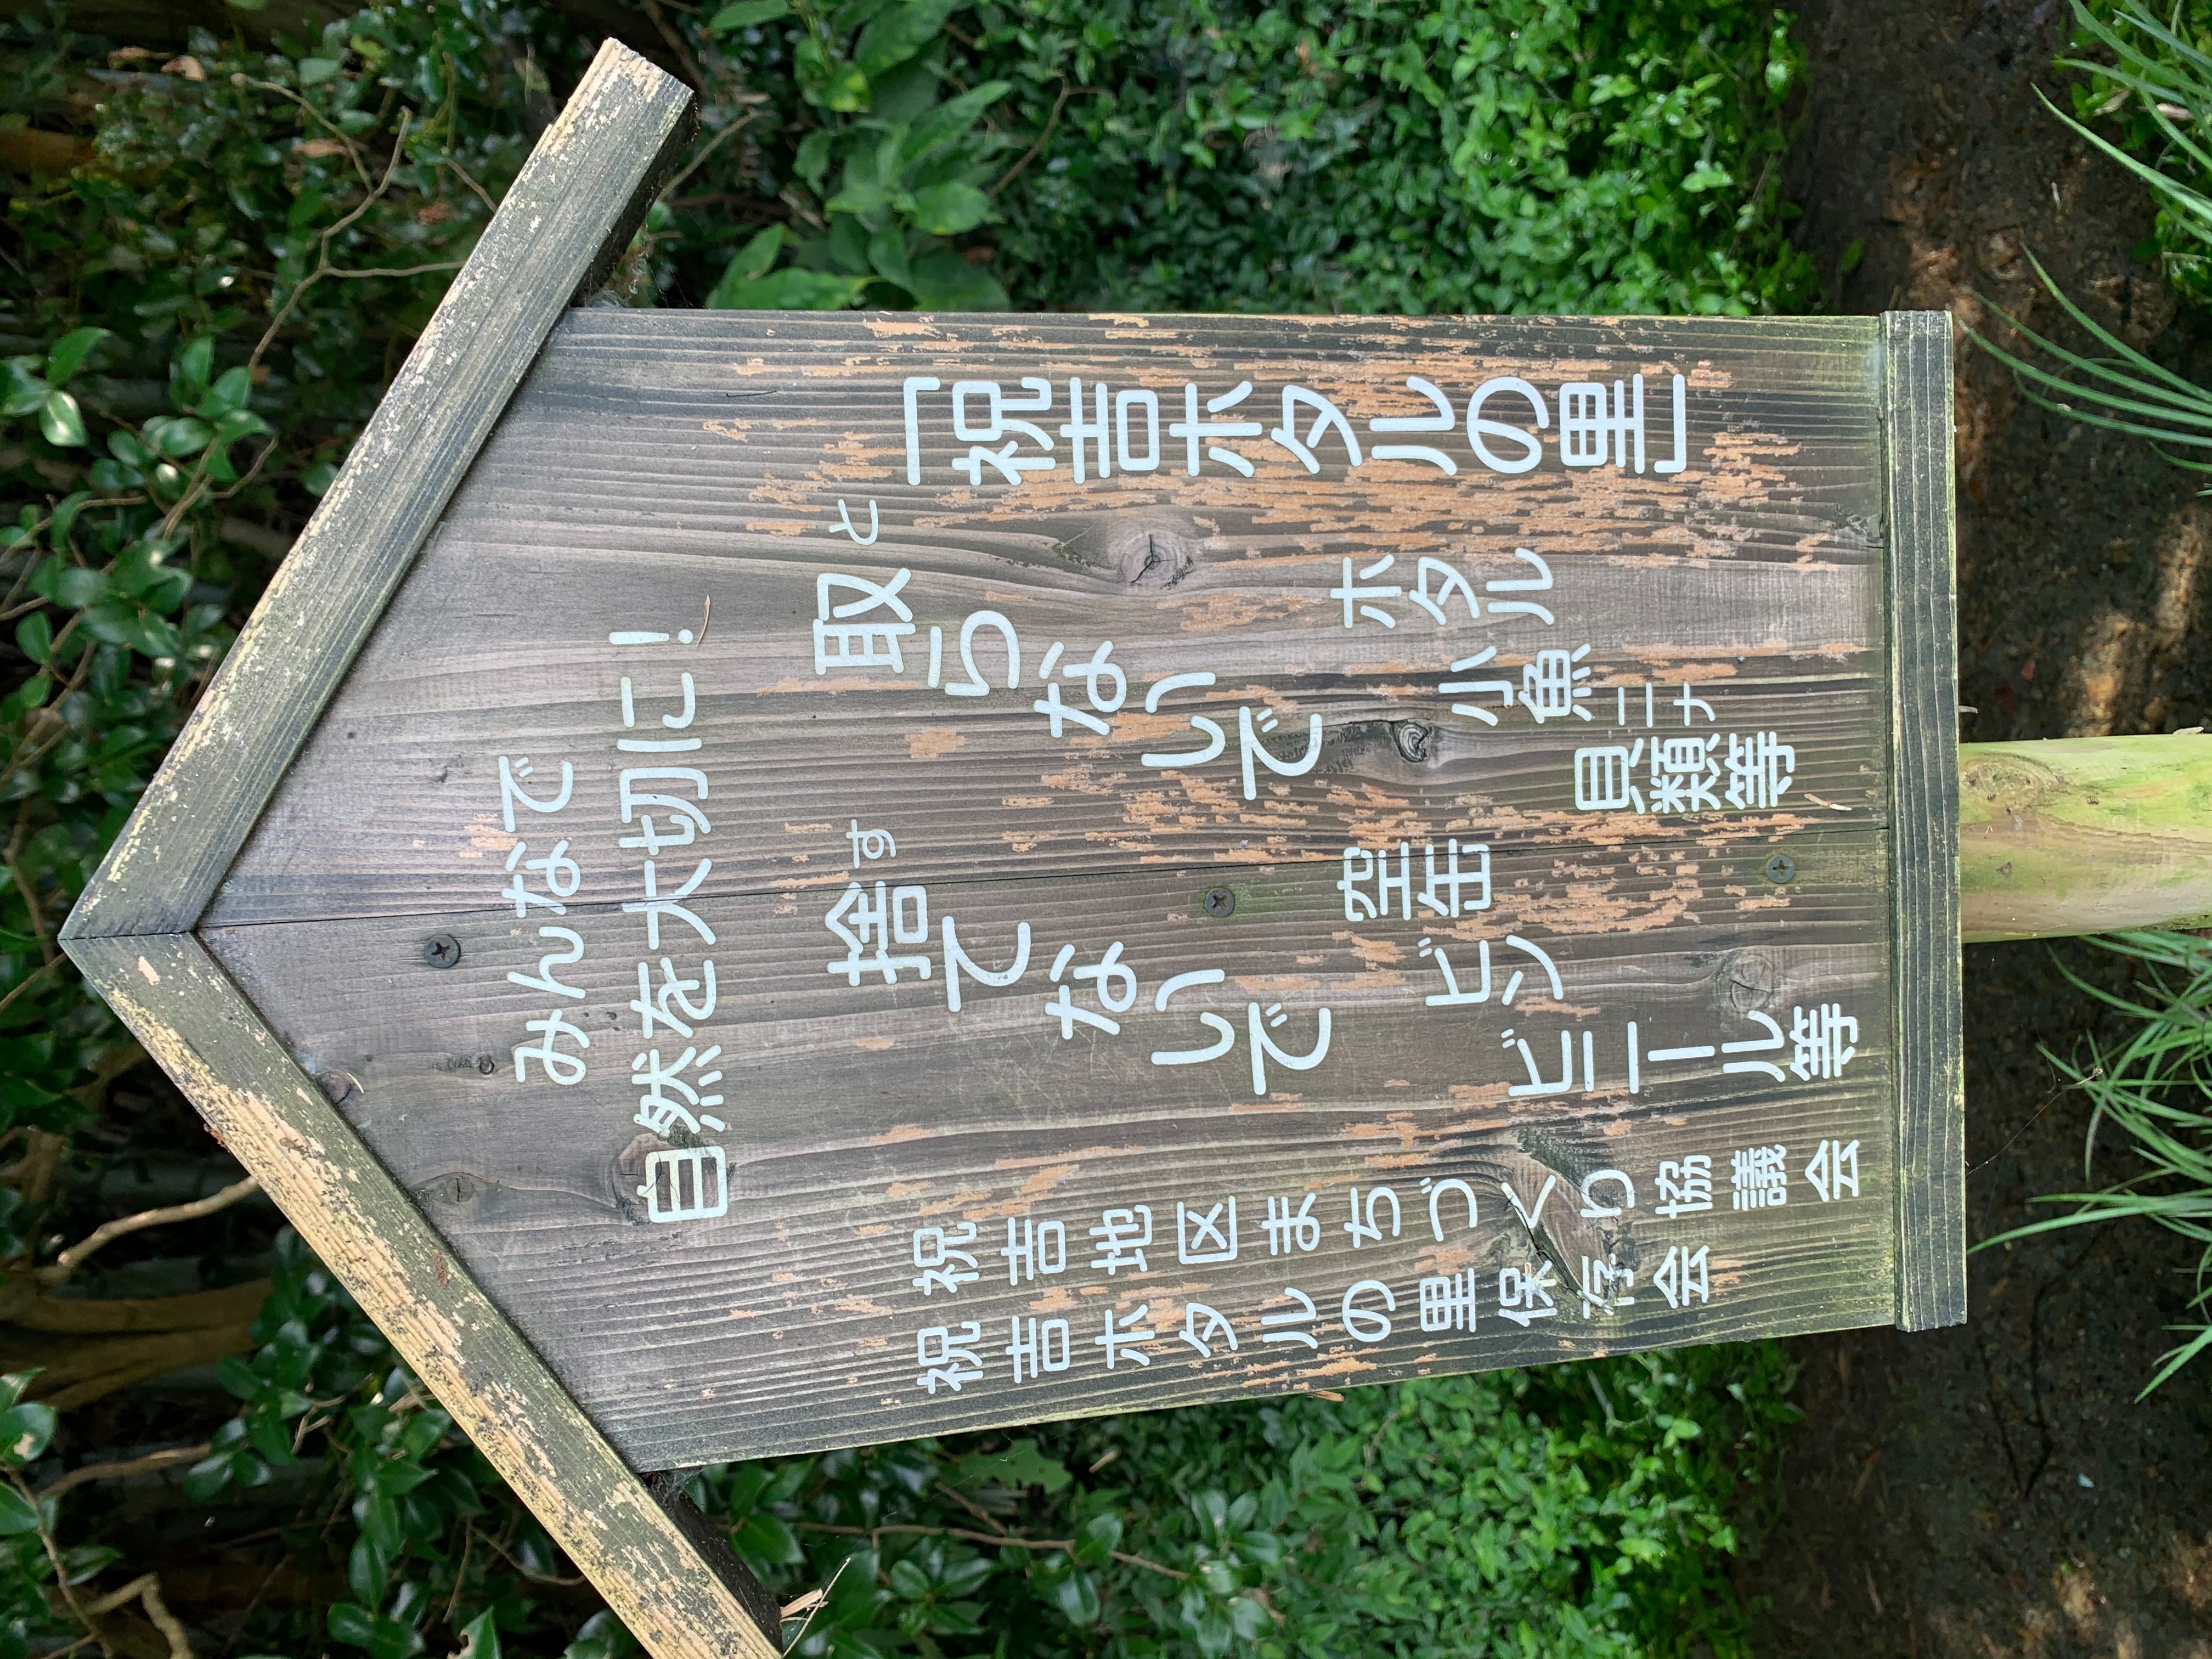 みんなで
自然を大切に!
「祝吉ホタルの里」
と
取らないで
ホタル
小魚
ニナ
貝類等
す
捨てないで
空缶
ビン
ビニール等
祝吉地区まちづくり協議会
祝吉ホタルの里保存会